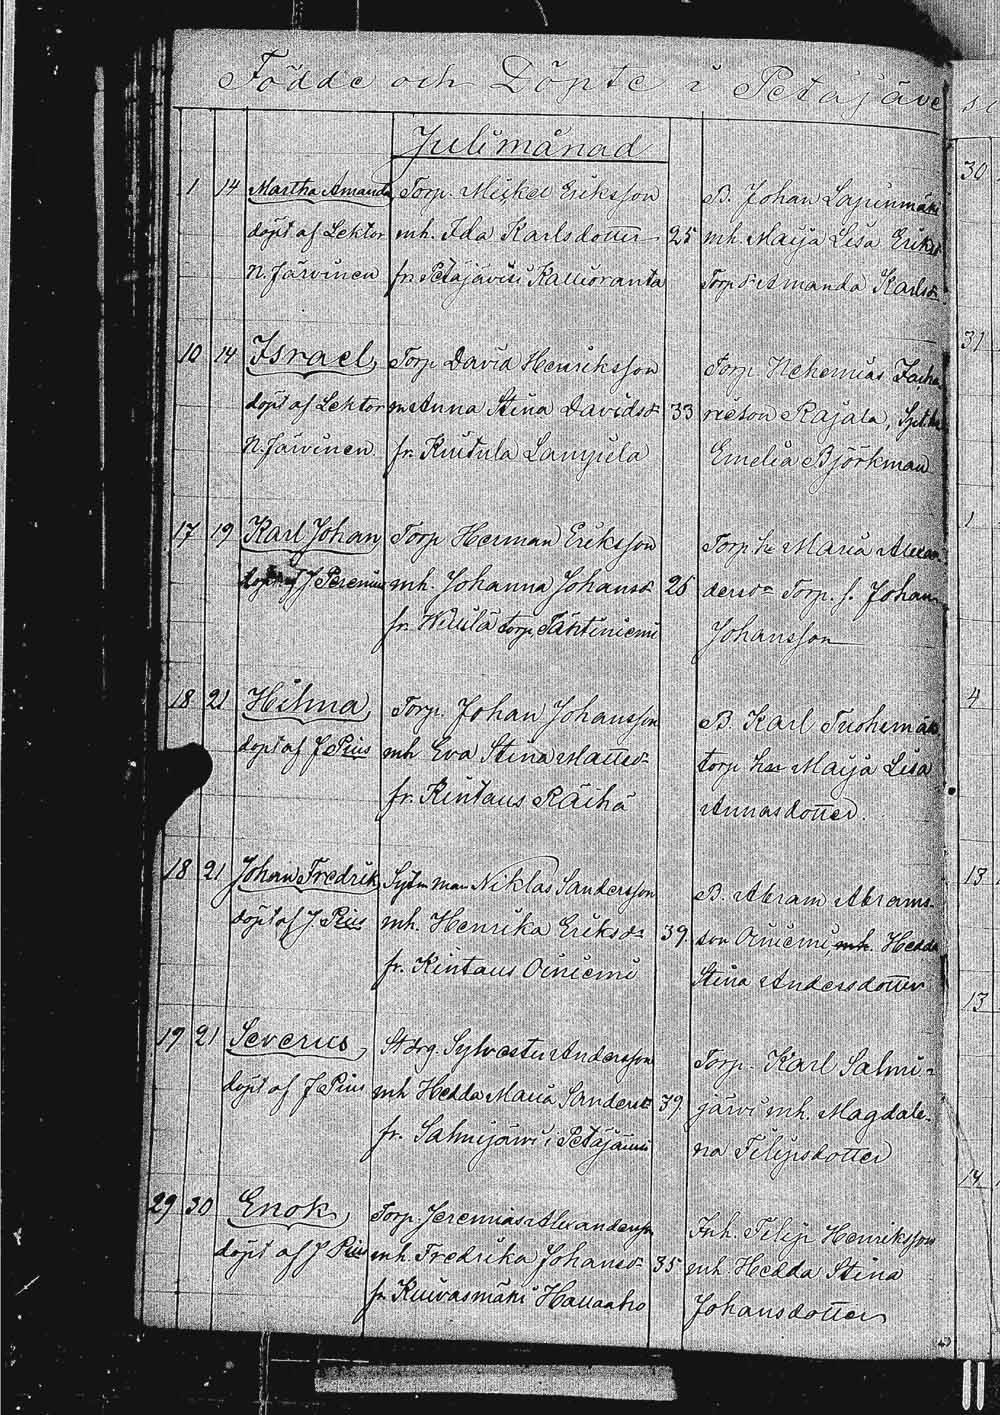 Födde och Döpte i Petäjäve
Julimånad
1 14 Martha Amanda Torp. Mickel Eriksson B. Johan Lapinmäki
döpt af Lektor mh. Ida Karlsdotter 25 mh. Maija Lisa Eriksd
N. Järvinen fr. Petäjävesi Kallioranta Torp dr Amanda Karlsdr
10 14 Israel Torp David Henriksson Torp Nehemias Zacha
döpt af Lektor m Anna Stina Davidsdr 33 rieson Rajala,
N. Järvinen fr. Kuitula Emelia Björkman
17 19 Karl Johan Torp Herman Eriksson Torp hu Maria Alexan
döpt af J. Perenius mh. Johanna Johansdr 26 dersdr Torp. s. Johan
fr. torp Tähtiniemi Johansson
18 21 Hilma Torp. Johan Johansson B. Karl Tuohemäki
döpt af J Pius mh Eva Stina Mattsdr torp hu Maija Lisa
fr. Kintaus Räihä Annasdotter.
18 21 Johan Fredrik Sytn man Niklas Sandersson B. Abram Abrams-
döpt af J. Pius mh. Henrika Eriksdr 39. son Oiniemi, mh. Hedda
fr. Kintaus Oiniemi Stina Andersdotter
19 21 Severus St drg. Sylvester Andersson Torp. Karl Salmi-
döpt af J Pius mh Hedda Maria Sandersdr 39 järvi mh. Magdale-
fr. Salmijärvi i Petäjävesi na Filipsdotter
29 30 Enok Torp Jeremias Alexandersson Inh. Filip Henriksson
döpt af J Pius mh. Fredrika Johansdr 35 mh. Hedda Stina
fr Kuivasmäki Hallaaho Johansdotter
30
31
1
4
13
13
14